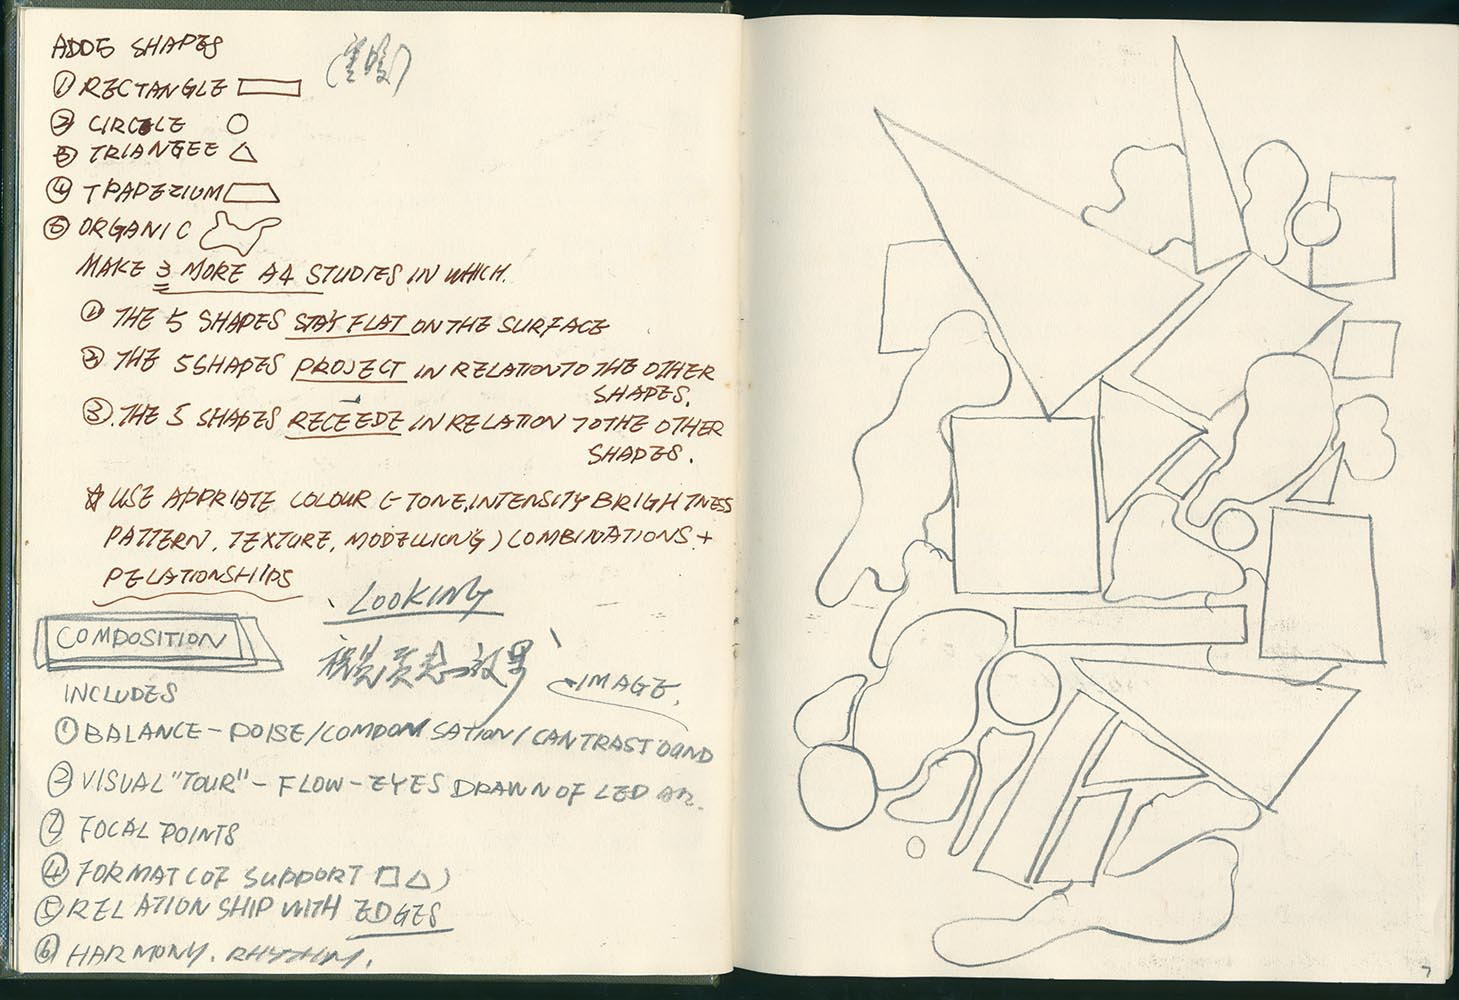 ADD 5 SHAPES
① RECTANGLE
② CIRCLE
③ TRIANGEE
④ TRAPEZIUM
⑤ ORGANIC
MAKE 3 MORE A4 STUDIES IN WHICH.
① THE 5 SHAPES STAY FLAT ON THE SURFACE
② THE 5 SHAPES PROJECT IN RELATION TO THE OTHER
SHAPES.
③. THE 5 SHAPES RECEEDE IN RELATION TO THE OTHER
SHAPES.
☆ USE APPRIATE COLOUR (- TONE, INTENSITY BRIGHTNESS
PATTERN, TEXTURE, MODELLIONG) COMBINATIONS +
RELATIONSHIPS
LOOKING
COMPOSITION
IMAGE.
INCLUDES
① BALANCE - POISE / COMPOMSATION / CANTRAST
② VISUAL "TOUR" - FLOW - EYES DRAWN OF LED
③ FOCAL POINTS
④ FORMAT (OF SUPPORT □ △)
⑤ RELATIONSHIP WITH EDGES
⑥ HARMONY. RHYTHM.
7